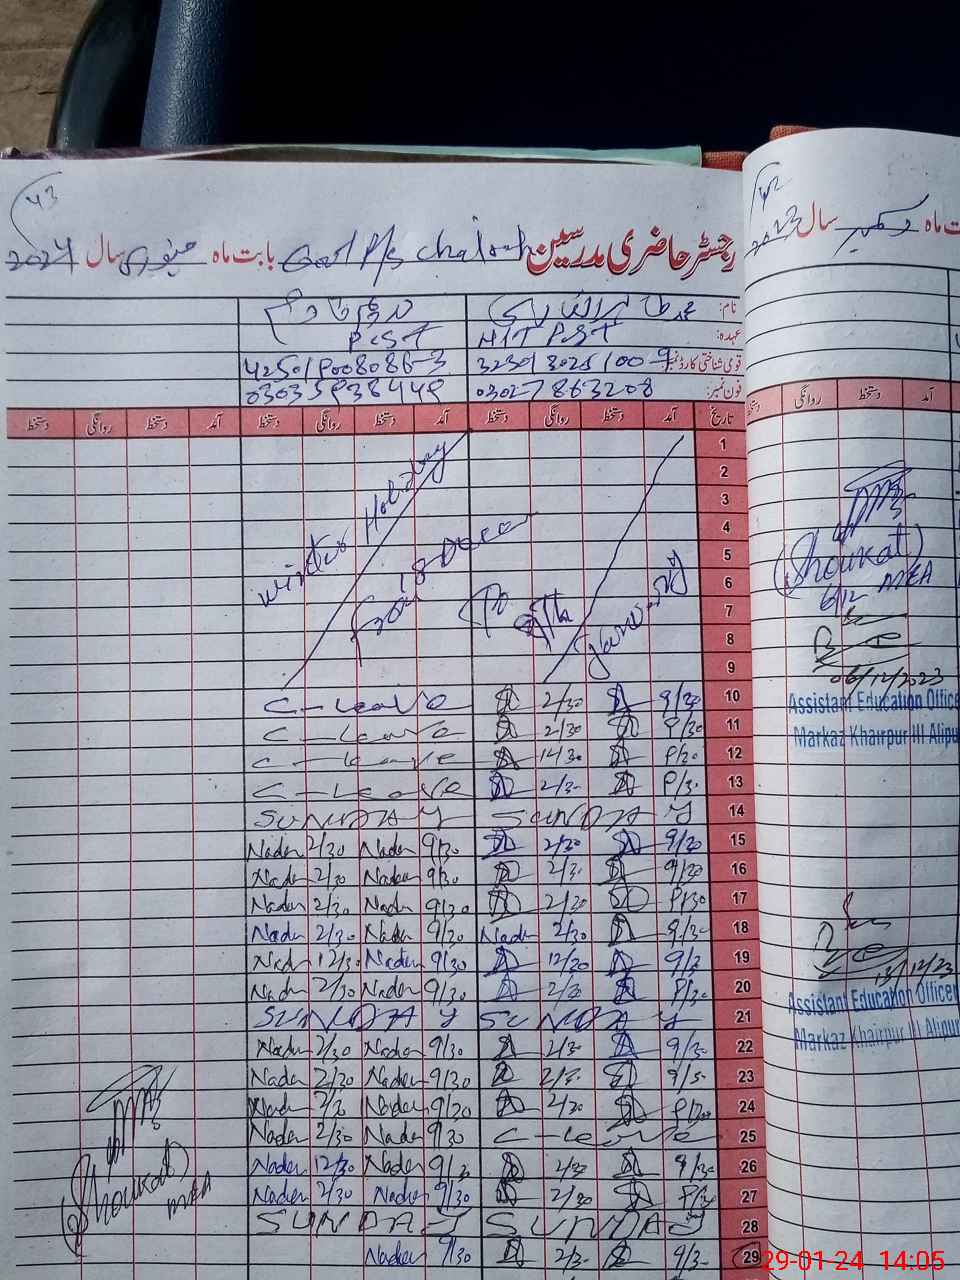 رجسٹر حاضری مدرسین Govt P/S بابت ماہ جنوری سال 2024
نام:
عہدہ: PST PST
قومی شناختی کارڈ نمبر
فون نمبر: 03027863208
تاریخ آمد دستخط روانگی دستخط آمد دستخط روانگی دستخط آمد دستخط روانگی دستخط
1
2
3
4
5
6
7
8
9
winter Holiday
From 18 Decem To 9th January
10 9/30 2/30 C-Leave
11 9/30 2/30 C-Leave
12 9/30 12/30 C-Leave
13 9/30 2/30 C-Leave
14 SUNDAY SUNDAY
15 9/30 2/30 9/30 Nader 2/30 Nader
16 9/30 2/30 9/30 Nader 2/30 Nader
17 9/30 2/30 9/30 Nader 2/30 Nader
18 9/30 2/30 Nader 9/30 Nader 2/30 Nader
19 9/30 12/30 9/30 Nader 12/30 Nader
20 9/30 2/30 9/30 Nader 2/30 Nader
21 SUNDAY SUNDAY
22 9/30 2/30 9/30 Nader 2/30 Nader
23 9/30 2/30 9/30 Nader 2/30 Nader
24 9/30 2/30 9/30 Nader 2/30 Nader
25 C-Leave 9/30 Nader 2/30 Nader
26 9/30 2/30 9/30 Nader 12/30 Nader
27 9/30 2/30 9/30 Nader 2/30 Nader
28 SUNDAY SUNDAY
29 9/30 2/30 9/30 Nader
(Shoukat)
MEA
43
42
ماہ دسمبر سال 2023
آمد دستخط روانگی دستخط
(Shoukat)
6/12 MEA
06/12/2023
Assistant Education Office
Markaz Khairpur III Alipu
13/12/23
Assistant Education Officer
Markaz Khairpur III Alipu
29-01-24 14:05